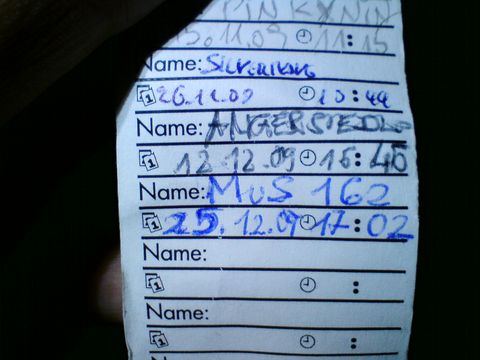 15.11.09 11:15
Name:
26.11.09 13:44
Name: ANGERSIEDL
12.12.09 16:45
Name: MUS 162
25.12.09 17:02
Name:
:
Name:
: